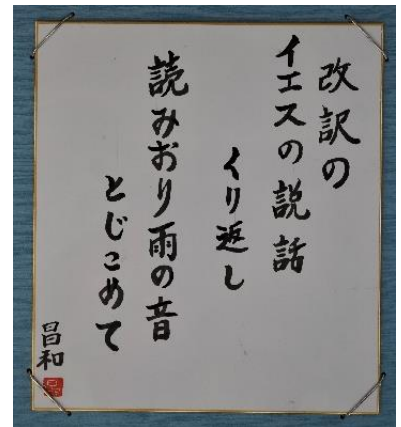 改訳の
イエスの説話
くり返し
読みおり雨の音
とじこめて
昌和